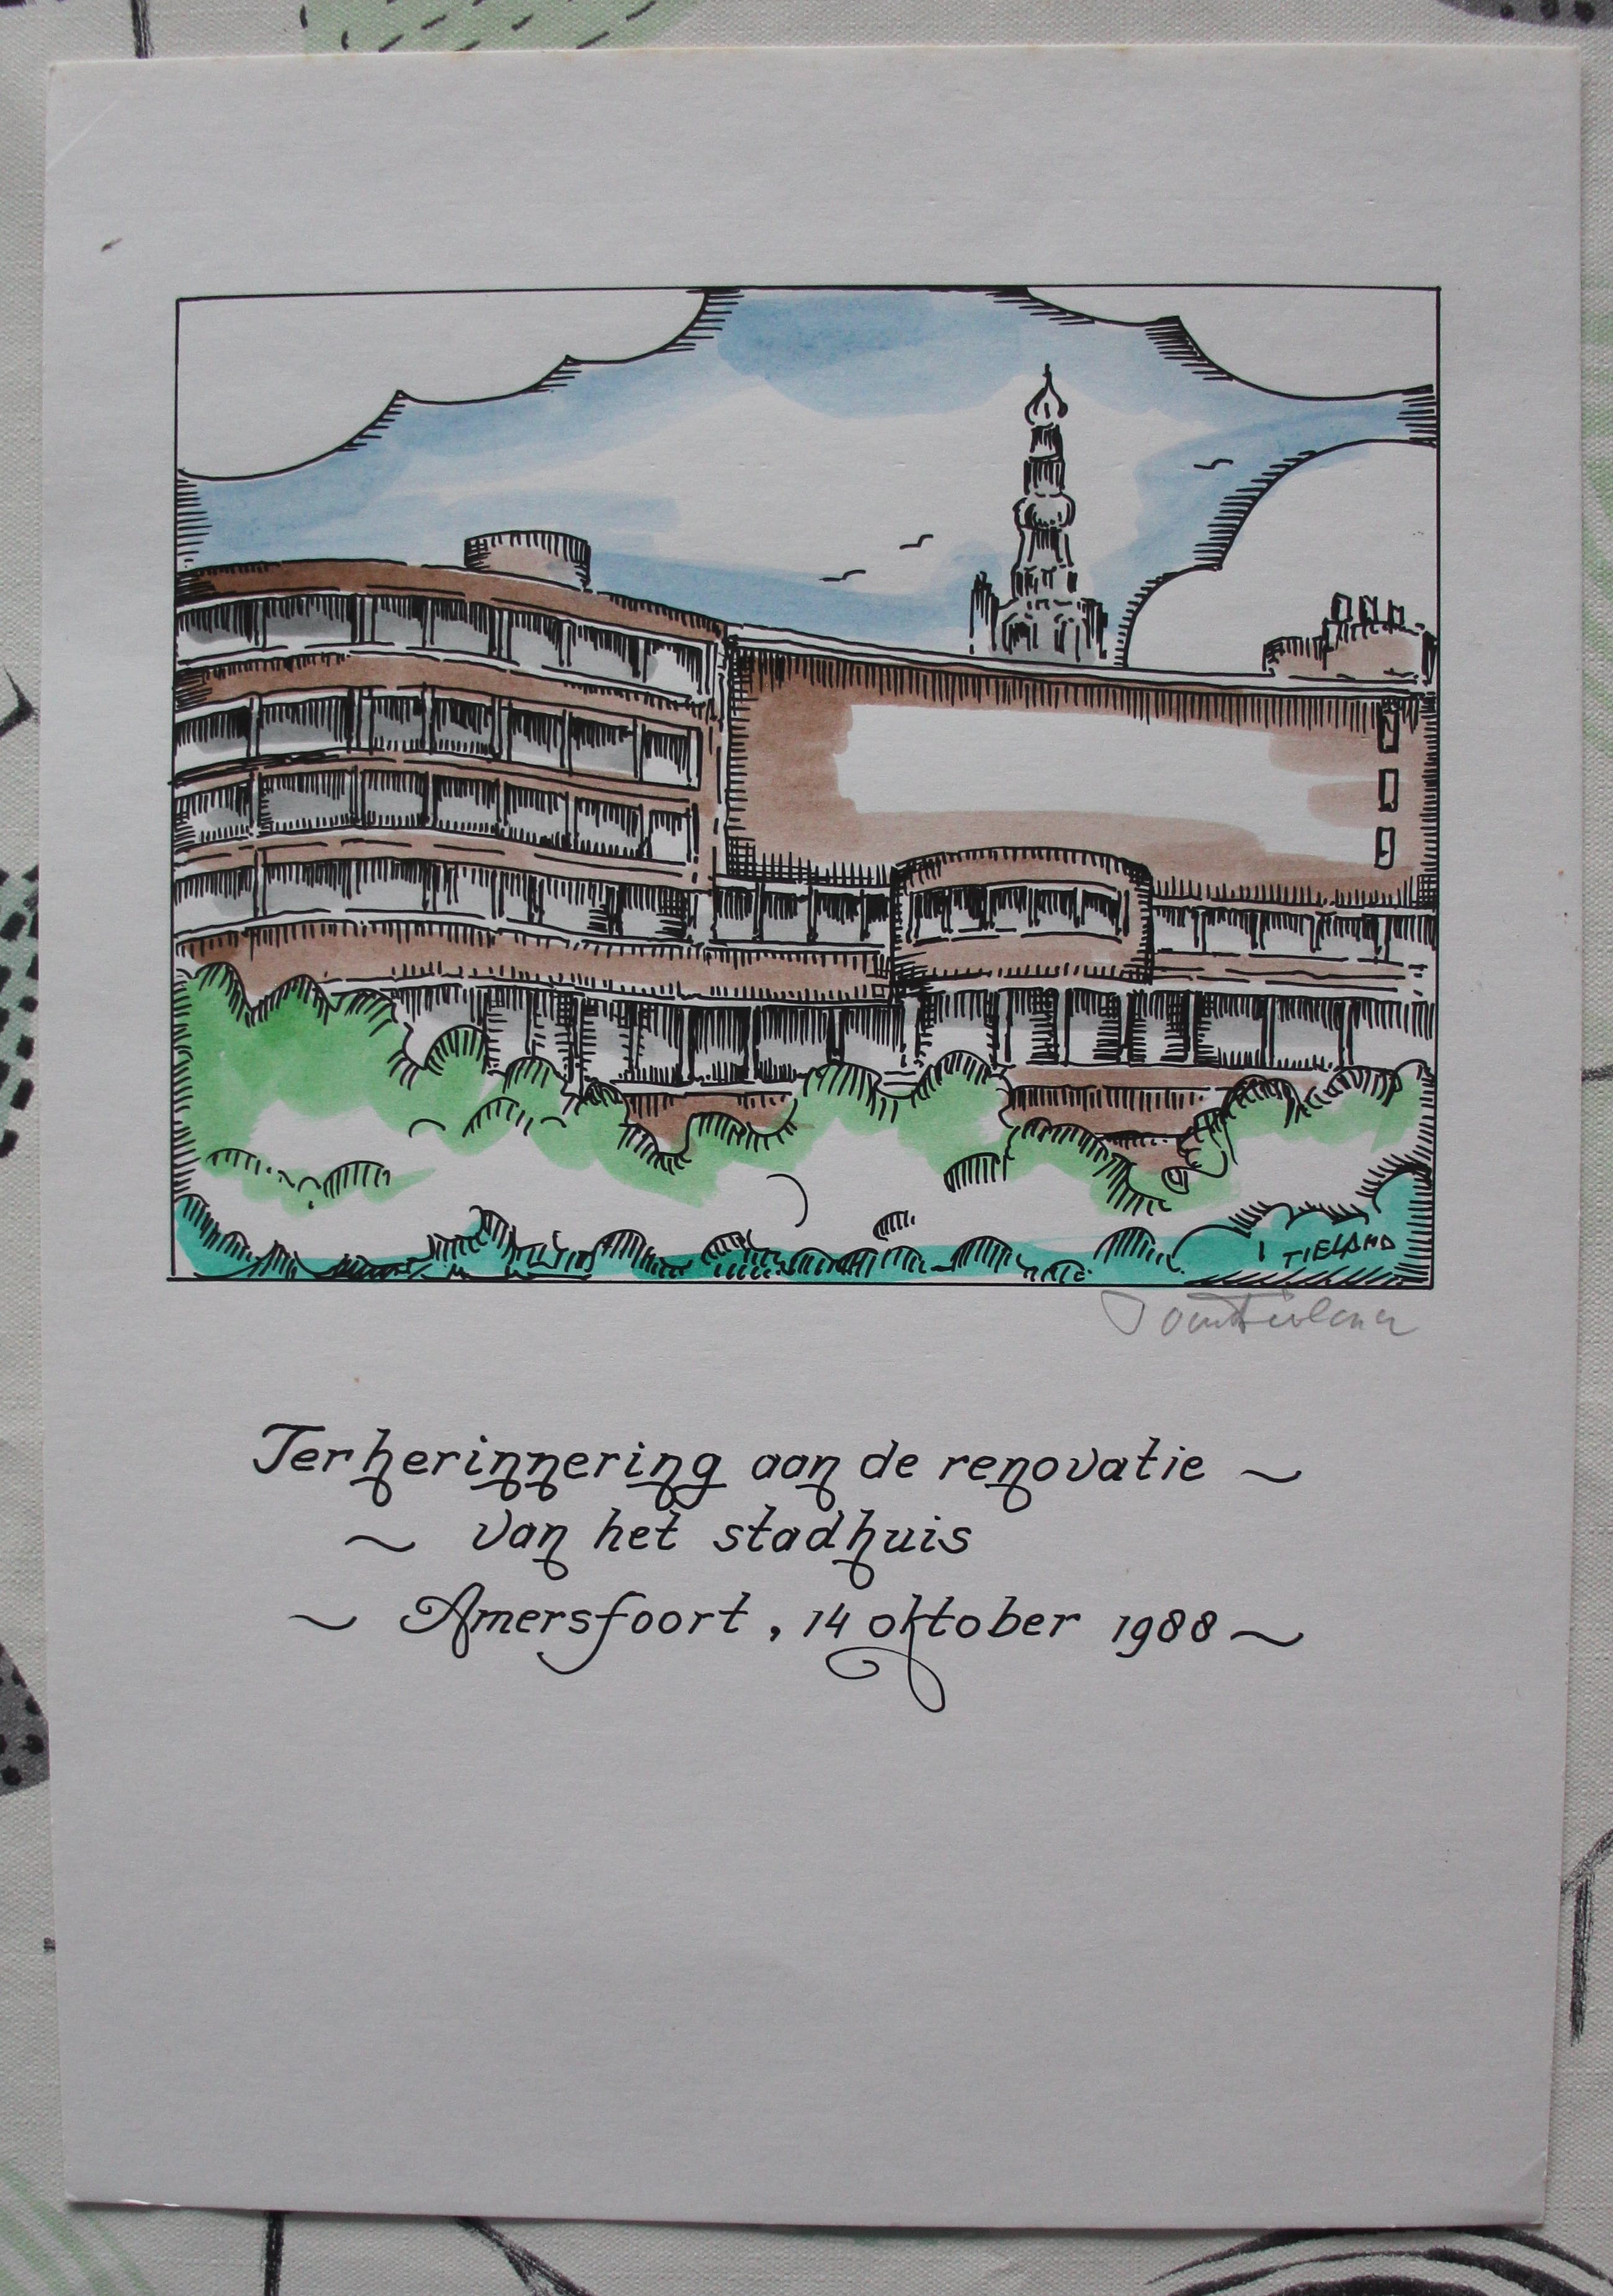 TIELAND
Ter herinnering aan de renovatie ~
~ van het stadhuis
~ Amersfoort, 14 oktober 1988 ~